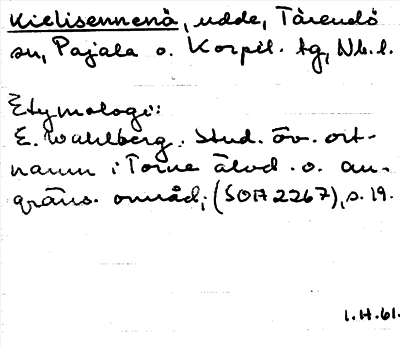 Kielisennenä, udde, Tärendö
sn, Pajala o. Korpil. tg, Nb.l.
Etymologi:
E. Wahlberg. Stud. öv. ort-
namn i Torne älvd. o. an-
gräns. områd; (SOA 2267), s. 19.
1.H.61.